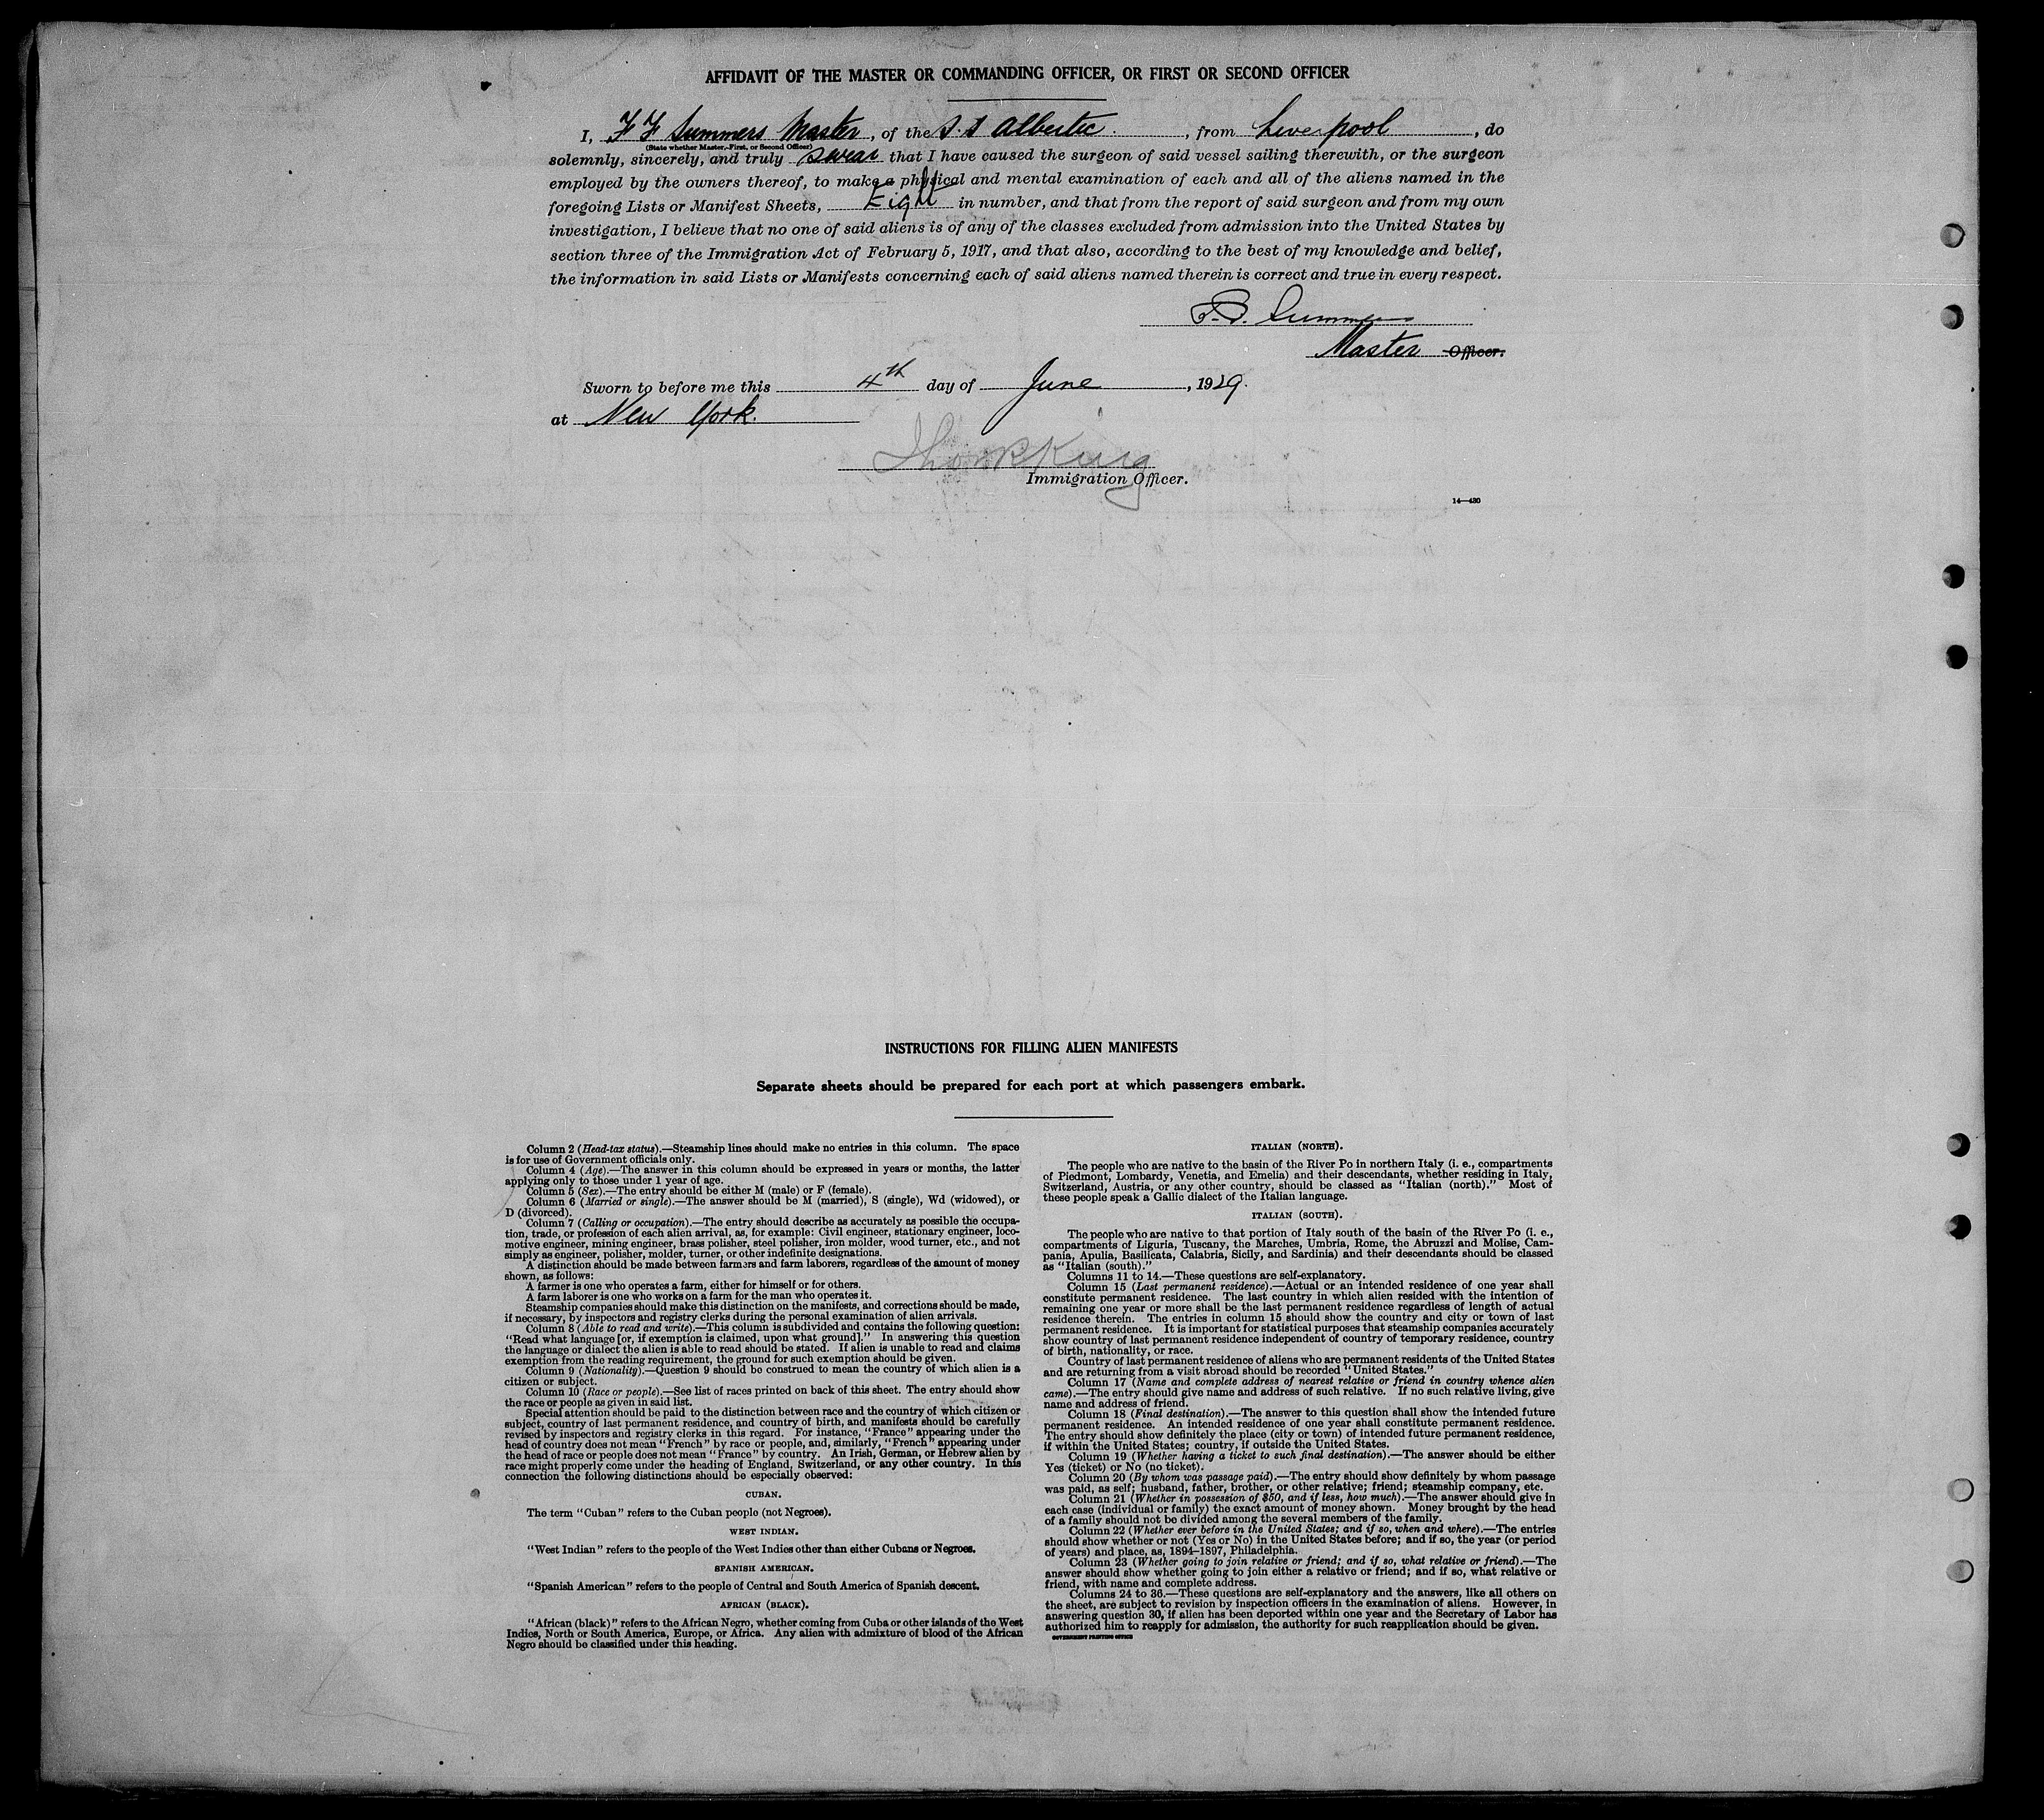 AFFIDAVIT OF THE MASTER OR COMMANDING OFFICER, OR FIRST OR SECOND OFFICER
I, F F Summers Master, of the S.S Albertic., from Liverpool, do
(State whether Master, First, or Second Officer)
solemnly, sincerely, and truly swear that I have caused the surgeon of said vessel sailing therewith, or the surgeon
employed by the owners thereof, to make a physical and mental examination of each and all of the aliens named in the
foregoing Lists or Manifest Sheets, Eight in number, and that from the report of said surgeon and from my own
investigation, I believe that no one of said aliens is of any of the classes excluded from admission into the United States by
section three of the Immigration Act of February 5, 1917, and that also, according to the best of my knowledge and belief,
the information in said Lists or Manifests concerning each of said aliens named therein is correct and true in every respect.
Summers
Master Officer.
Sworn to before me this 4th day of June, 1929.
at New York.
King
Immigration Officer.
14—430
INSTRUCTIONS FOR FILLING ALIEN MANIFESTS
Separate sheets should be prepared for each port at which passengers embark.
Column 2 (Head-tax status).—Steamship lines should make no entries in this column. The space
is for use of Government officials only.
Column 4 (Age).—The answer in this column should be expressed in years or months, the latter
applying only to those under 1 year of age.
Column 5 (Sex).—The entry should be either M (male) or F (female).
Column 6 (Married or single).—The answer should be M (married), S (single), Wd (widowed), or
D (divorced).
Column 7 (Calling or occupation).—The entry should describe as accurately as possible the occupa-
tion, trade, or profession of each alien arrival, as, for example: Civil engineer, stationary engineer, loco-
motive engineer, mining engineer, brass polisher, steel polisher, iron molder, wood turner, etc., and not
simply as engineer, polisher, molder, turner, or other indefinite designations.
A distinction should be made between farmers and farm laborers, regardless of the amount of money
shown, as follows:
A farmer is one who operates a farm, either for himself or for others.
A farm laborer is one who works on a farm for the man who operates it.
Steamship companies should make this distinction on the manifests, and corrections should be made,
if necessary, by inspectors and registry clerks during the personal examination of alien arrivals.
Column 8 (Able to read and write).—This column is subdivided and contains the following question:
"Read what language [or, if exemption is claimed, upon what ground]." In answering this question
the language or dialect the alien is able to read should be stated. If alien is unable to read and claims
exemption from the reading requirement, the ground for such exemption should be given.
Column 9 (Nationality).—Question 9 should be construed to mean the country of which alien is a
citizen or subject.
Column 10 (Race or people).—See list of races printed on back of this sheet. The entry should show
the race or people as given in said list.
Special attention should be paid to the distinction between race and the country of which citizen or
subject, country of last permanent residence, and country of birth, and manifests should be carefully
revised by inspectors and registry clerks in this regard. For instance, "France" appearing under the
head of country does not mean "French" by race or people, and, similarly, "French" appearing under
the head of race or people does not mean "France" by country. An Irish, German, or Hebrew alien by
race might properly come under the heading of England, Switzerland, or any other country. In this
connection the following distinctions should be especially observed:
CUBAN.
The term "Cuban" refers to the Cuban people (not Negroes).
WEST INDIAN.
"West Indian" refers to the people of the West Indies other than either Cubans or Negroes.
SPANISH AMERICAN.
"Spanish American" refers to the people of Central and South America of Spanish descent.
AFRICAN (BLACK).
"African (black)" refers to the African Negro, whether coming from Cuba or other islands of the West
Indies, North or South America, Europe, or Africa. Any alien with admixture of blood of the African
Negro should be classified under this heading.
ITALIAN (NORTH).
The people who are native to the basin of the River Po in northern Italy (i. e., compartments
of Piedmont, Lombardy, Venetia, and Emelia) and their descendants, whether residing in Italy,
Switzerland, Austria, or any other country, should be classed as "Italian (north)." Most of
these people speak a Gallic dialect of the Italian language.
ITALIAN (SOUTH).
The people who are native to that portion of Italy south of the basin of the River Po (i. e.,
compartments of Liguria, Tuscany, the Marches, Umbria, Rome, the Abruzzi and Molise, Cam-
pania, Apulia, Basilicata, Calabria, Sicily, and Sardinia) and their descendants should be classed
as "Italian (south)."
Columns 11 to 14.—These questions are self-explanatory.
Column 15 (Last permanent residence).—Actual or an intended residence of one year shall
constitute permanent residence. The last country in which alien resided with the intention of
remaining one year or more shall be the last permanent residence regardless of length of actual
residence therein. The entries in column 15 should show the country and city or town of last
permanent residence. It is important for statistical purposes that steamship companies accurately
show country of last permanent residence independent of country of temporary residence, country
of birth, nationality, or race.
Country of last permanent residence of aliens who are permanent residents of the United States
and are returning from a visit abroad should be recorded "United States."
Column 17 (Name and complete address of nearest relative or friend in country whence alien
came).—The entry should give name and address of such relative. If no such relative living, give
name and address of friend.
Column 18 (Final destination).—The answer to this question shall show the intended future
permanent residence. An intended residence of one year shall constitute permanent residence.
The entry should show definitely the place (city or town) of intended future permanent residence,
if within the United States; country, if outside the United States.
Column 19 (Whether having a ticket to such final destination).—The answer should be either
Yes (ticket) or No (no ticket).
Column 20 (By whom was passage paid).—The entry should show definitely by whom passage
was paid, as self; husband, father, brother, or other relative; friend; steamship company, etc.
Column 21 (Whether in possession of $50, and if less, how much).—The answer should give in
each case (individual or family) the exact amount of money shown. Money brought by the head
of a family should not be divided among the several members of the family.
Column 22 (Whether ever before in the United States; and if so, when and where).—The entries
should show whether or not (Yes or No) in the United States before; and if so, the year (or period
of years) and place, as, 1894–1897, Philadelphia.
Column 23 (Whether going to join relative or friend; and if so, what relative or friend).—The
answer should show whether going to join either a relative or friend; and if so, what relative or
friend, with name and complete address.
Columns 24 to 36.—These questions are self-explanatory and the answers, like all others on
the sheet, are subject to revision by inspection officers in the examination of aliens. However, in
answering question 30, if alien has been deported within one year and the Secretary of Labor has
authorized him to reapply for admission, the authority for such reapplication should be given.
GOVERNMENT PRINTING OFFICE